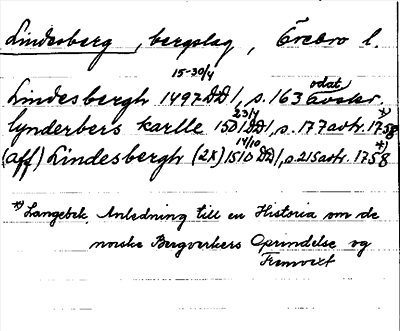 Lindesberg, bergslag, Örebro l.
15-30/4
Lindesbergh 1497 DD1, s. 163 odat avskr.
lynderbers karlle 1501 23/7 DD1, s. 177 avtr. 1758 *)
(aff) Lindesbergh (2x) 1510 14/10 DD1, s. 215 avtr. 1758 *)
*) Langebek, Anledning till en Historia om de
norske Bergverkers Oprindelse og
Fremvext